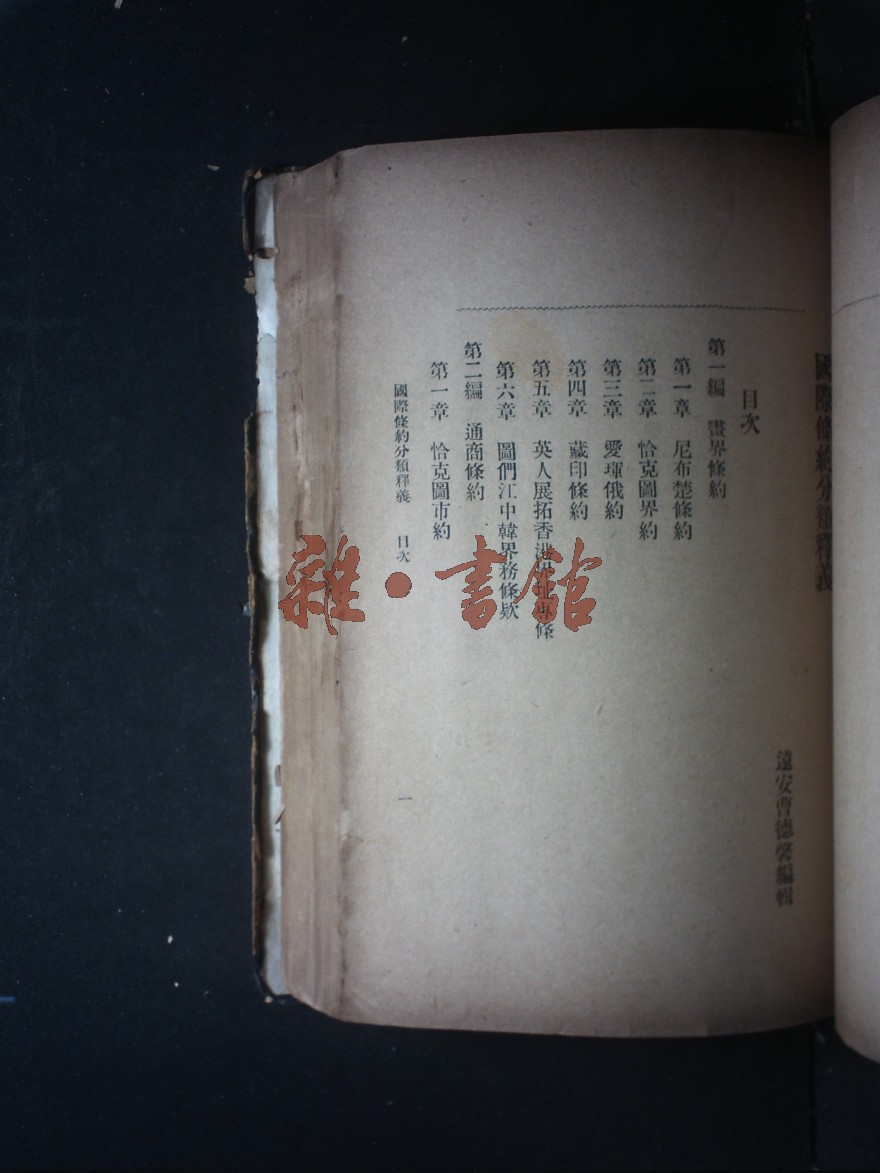 國際條約分類釋義
遠安曹德馨編輯
目次
第一編 畫界條約
第一章 尼布楚條約
第二章 恰克圖界約
第三章 愛琿俄約
第四章 藏印條約
第五章 英人展拓香港界址專條
第六章 圖們江中韓界務條欵
第二編 通商條約
第一章 恰克圖市約
國際條約分類釋義 目次
一
雜·書館